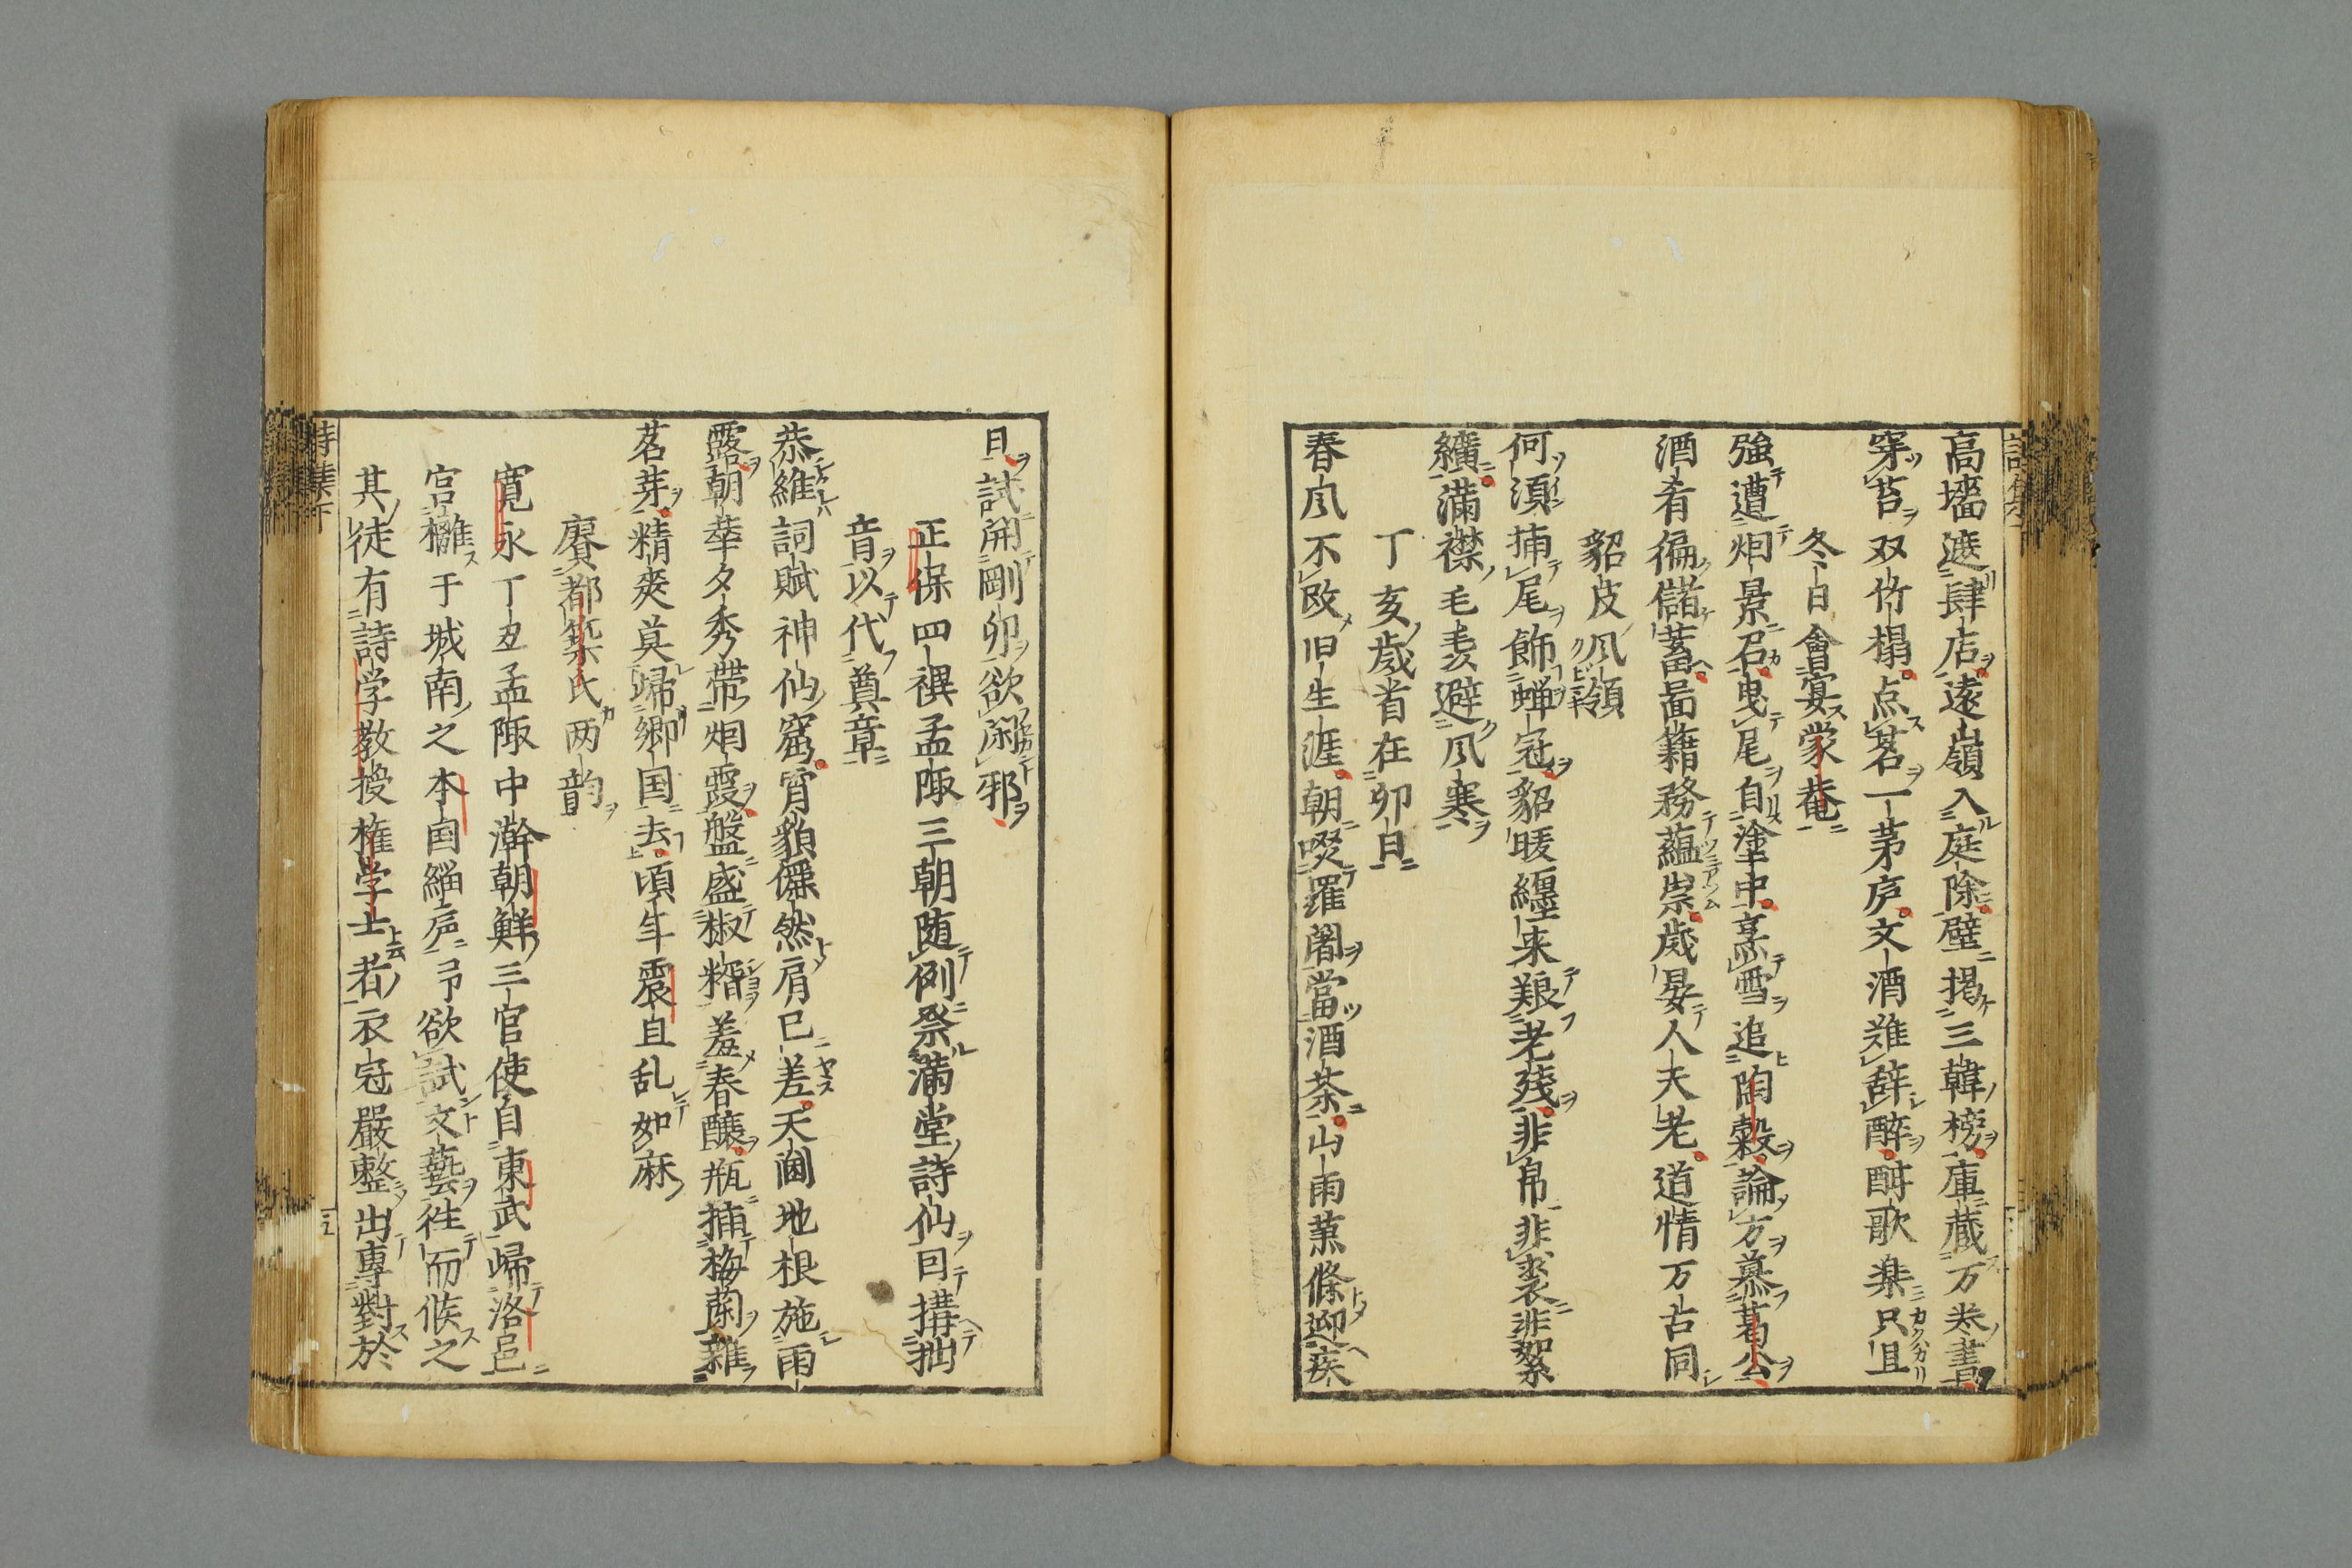 高墻遮肆店遠嶺入庭除壁掲三韓榜庫藏万巻書
穿苔双竹榻点茗一茅庐文酒難辞醉酣歌楽只且
冬日會宴蒙菴
強遭炯景召曳尾自塗中烹雪追陶穀論方慕葛公
酒肴徧儲蓄啚籍務蘊崇歳晏人夭老道情万古同
貂皮风領
何湏挿尾飾蝉冠貂暖纒来艱老残非帛非裘非絮
纊満襟毛羙避风寒
丁亥歳首在卯日
春风不改旧生涯朝啜羅闍當酒茶山雨薫條迎疾
日試開剛卯欲郤邪
正保四禩孟陬三朝随例祭満堂詩仙回搆拙
音以代奠章
恭維詞賦神仙窟宵貌儼然肩已差天閫地根施雨
露朝華夕秀帯炯霞盤盛椒糈羞春醸瓶挿梅蘭雜
茗芽精爽莫歸郷国去頃年震且乱如麻
賡都築氏两韵
寛永丁丑孟陬中澣朝鮮三官使自東武歸洛邑
宮檥于城南之本国緇庐予欲試文藝徃而候之
其徒有詩学教授権学士者衣冠嚴整出專對於
詩集下